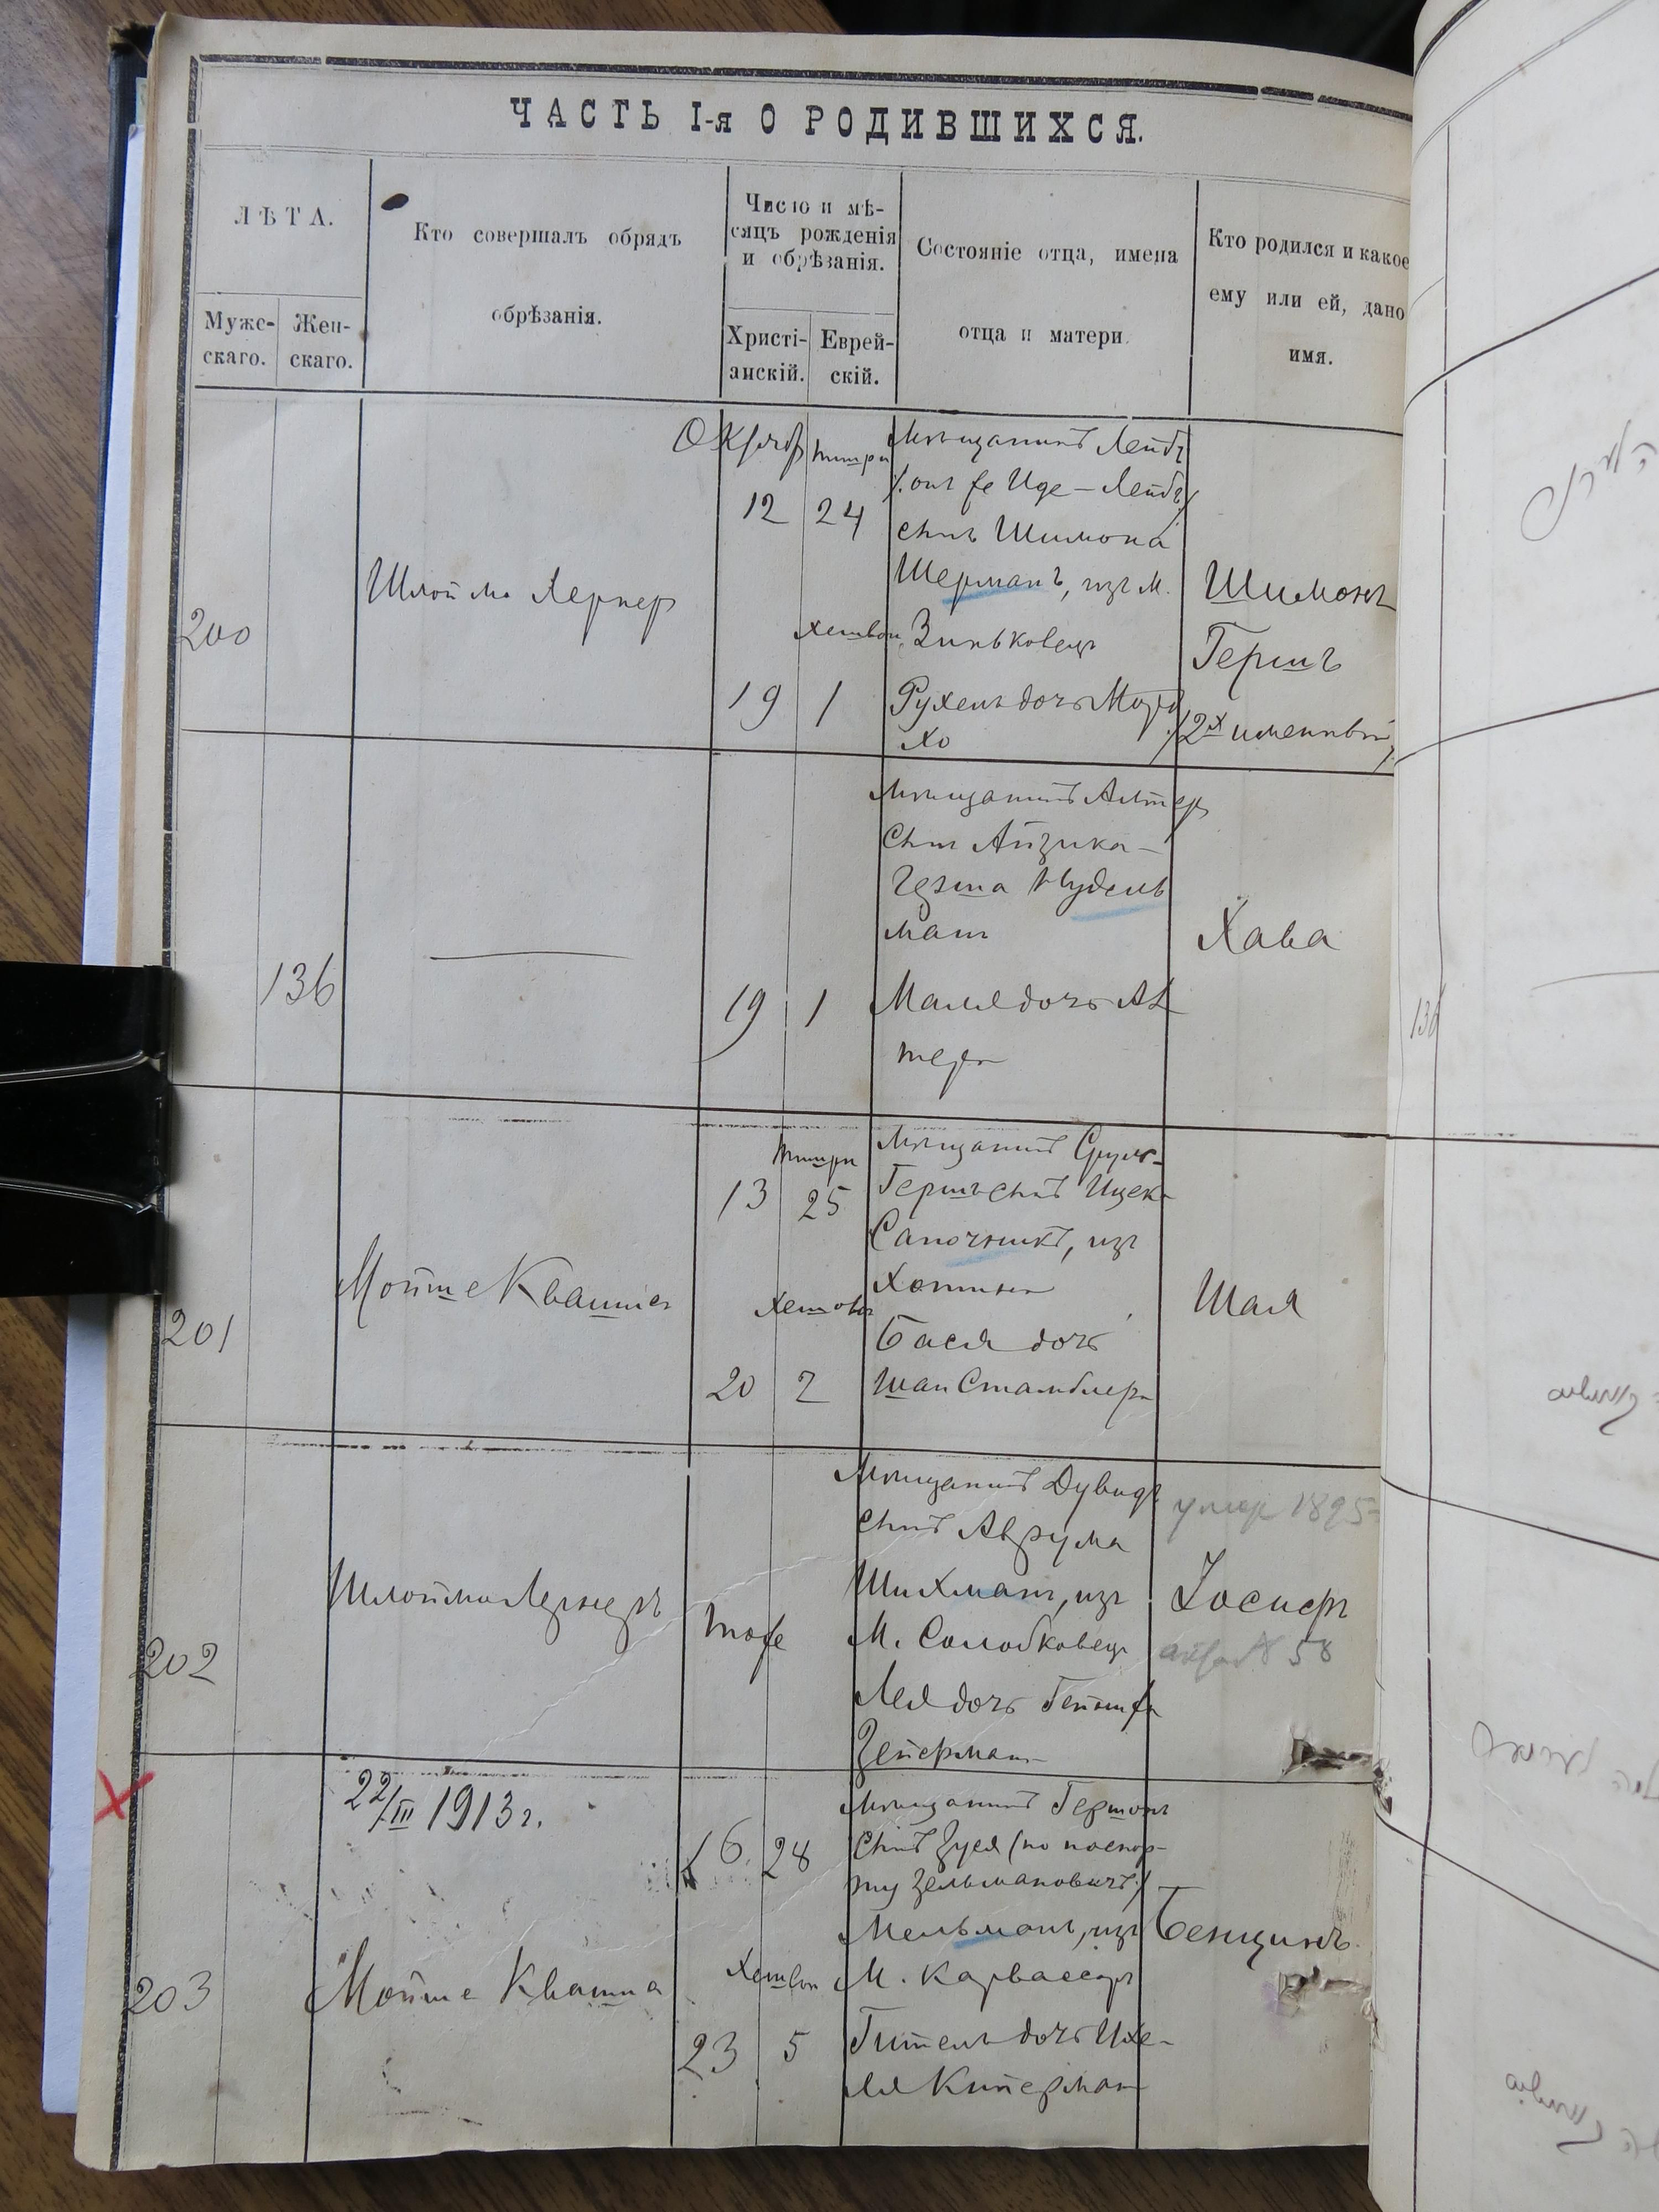 ЧАСТЬ I-я О РОДИВШИХСЯ.
ЛѢТА.
Мужс-
скаго.
Жен-
скаго.
Кто совершалъ обрядъ
обрѣзанія.
Число и мѣ-
сяцъ рожденія
и обрѣзанія.
Христі-
анскій.
Еврей-
скій.
Состояніе отца, имена
отца и матери.
Кто родился и какое
ему или ей, дано
имя.
200
Шлойма Лернер
Октябр
12
19
тишри
24
хешван
1
Мѣщанинъ Лейбъ
/онъ же Иде-Лейбъ/
сынъ Шимона
Шерманъ, изъ м.
Зиньковецъ
Рухель дочь Морд
ха
Шимонъ
Гершъ
/2х именный/
136
19
1
Мѣщанинъ Алтер
сынъ Айзика-
Нудель
манъ
Маля дочь Ал
тера
Хава
201
Мойше Квашна
13
20
тишри
25
хешван
2
Мѣщанинъ Сруль-
Гершъ сынъ Ицека
Сапочникъ, изъ
Хотина
Бася дочь
Шаи Стамблера
Шая
202
Шлойма Лернеръ
тоже
Мѣщанинъ Дувидъ
сынъ Аврума
Шихманъ, изъ
м. Солобковецъ
Лея дочь
Зейерман
умер 1895
Iосифъ
58
22/III 1913 г.
203
Мойше Квашна
16
23
28
хешван
5
Мѣщанинъ Гершонъ
сынъ Зуся (по паспор-
ту Зельмановичъ)
Мельманъ, изъ
м. Карвасаръ
Гитель дочь Ихе-
ля Киперман
Бенционъ.
136